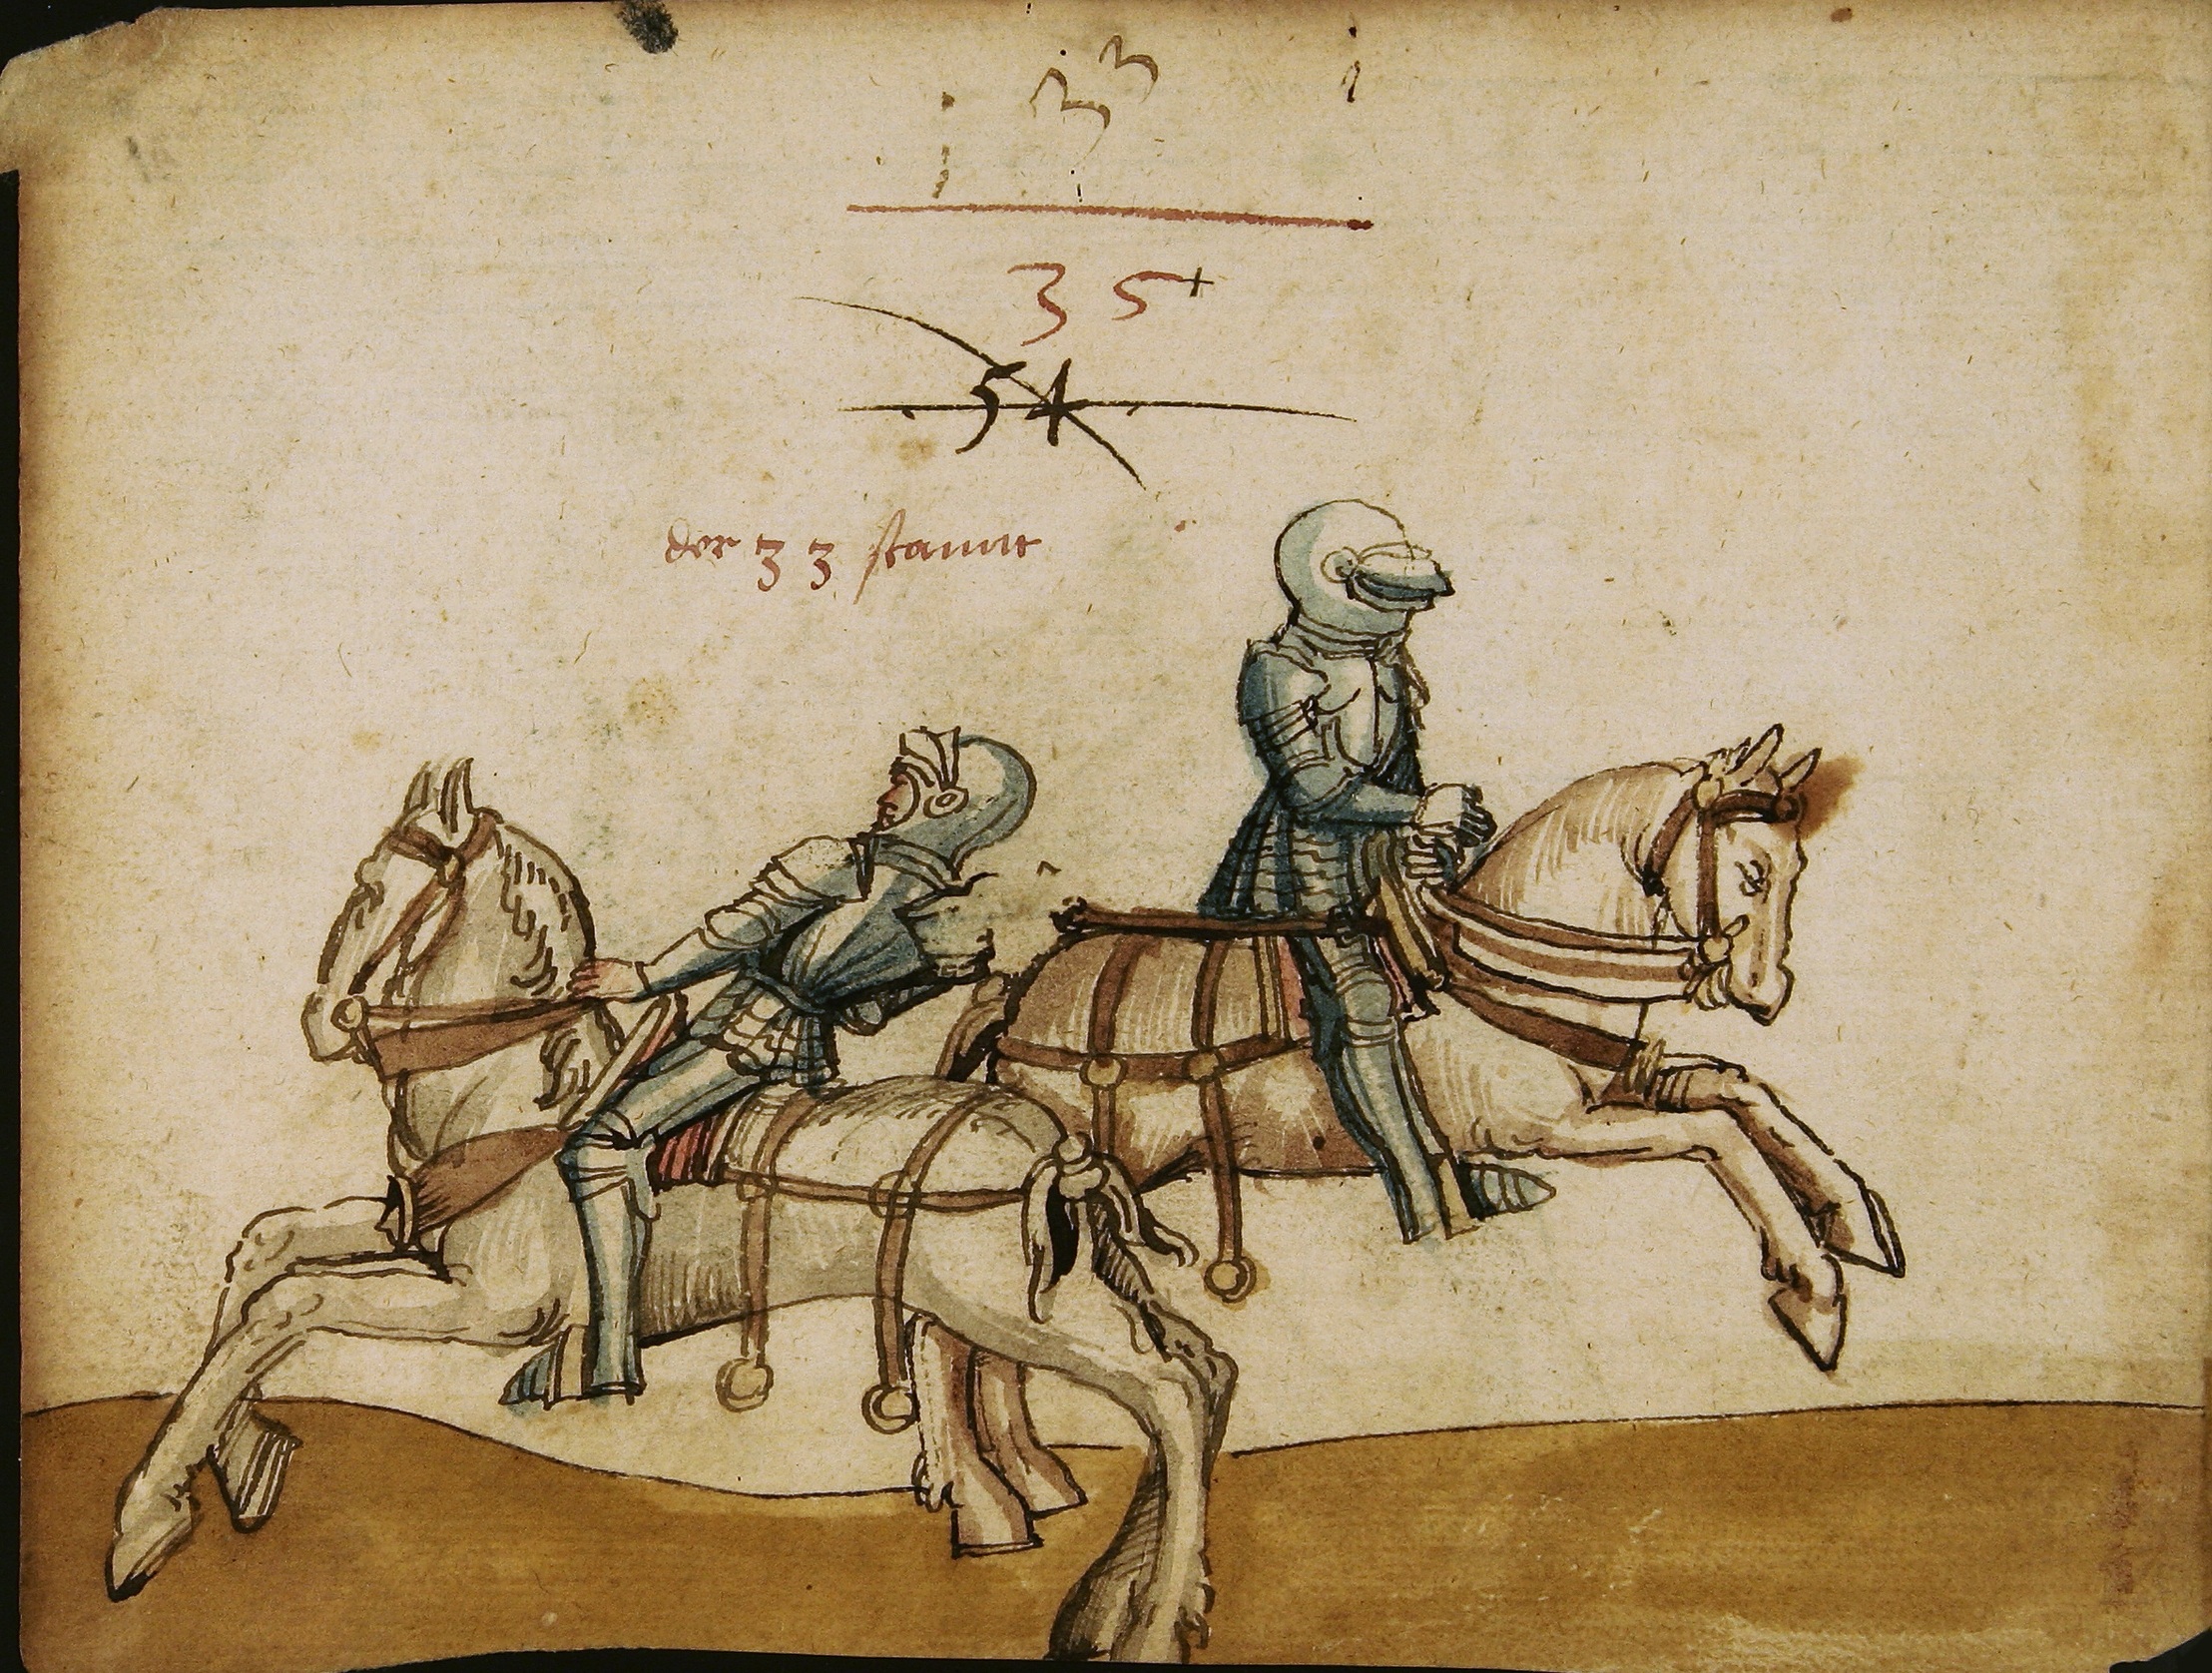 33
35
54
der 33 stannt